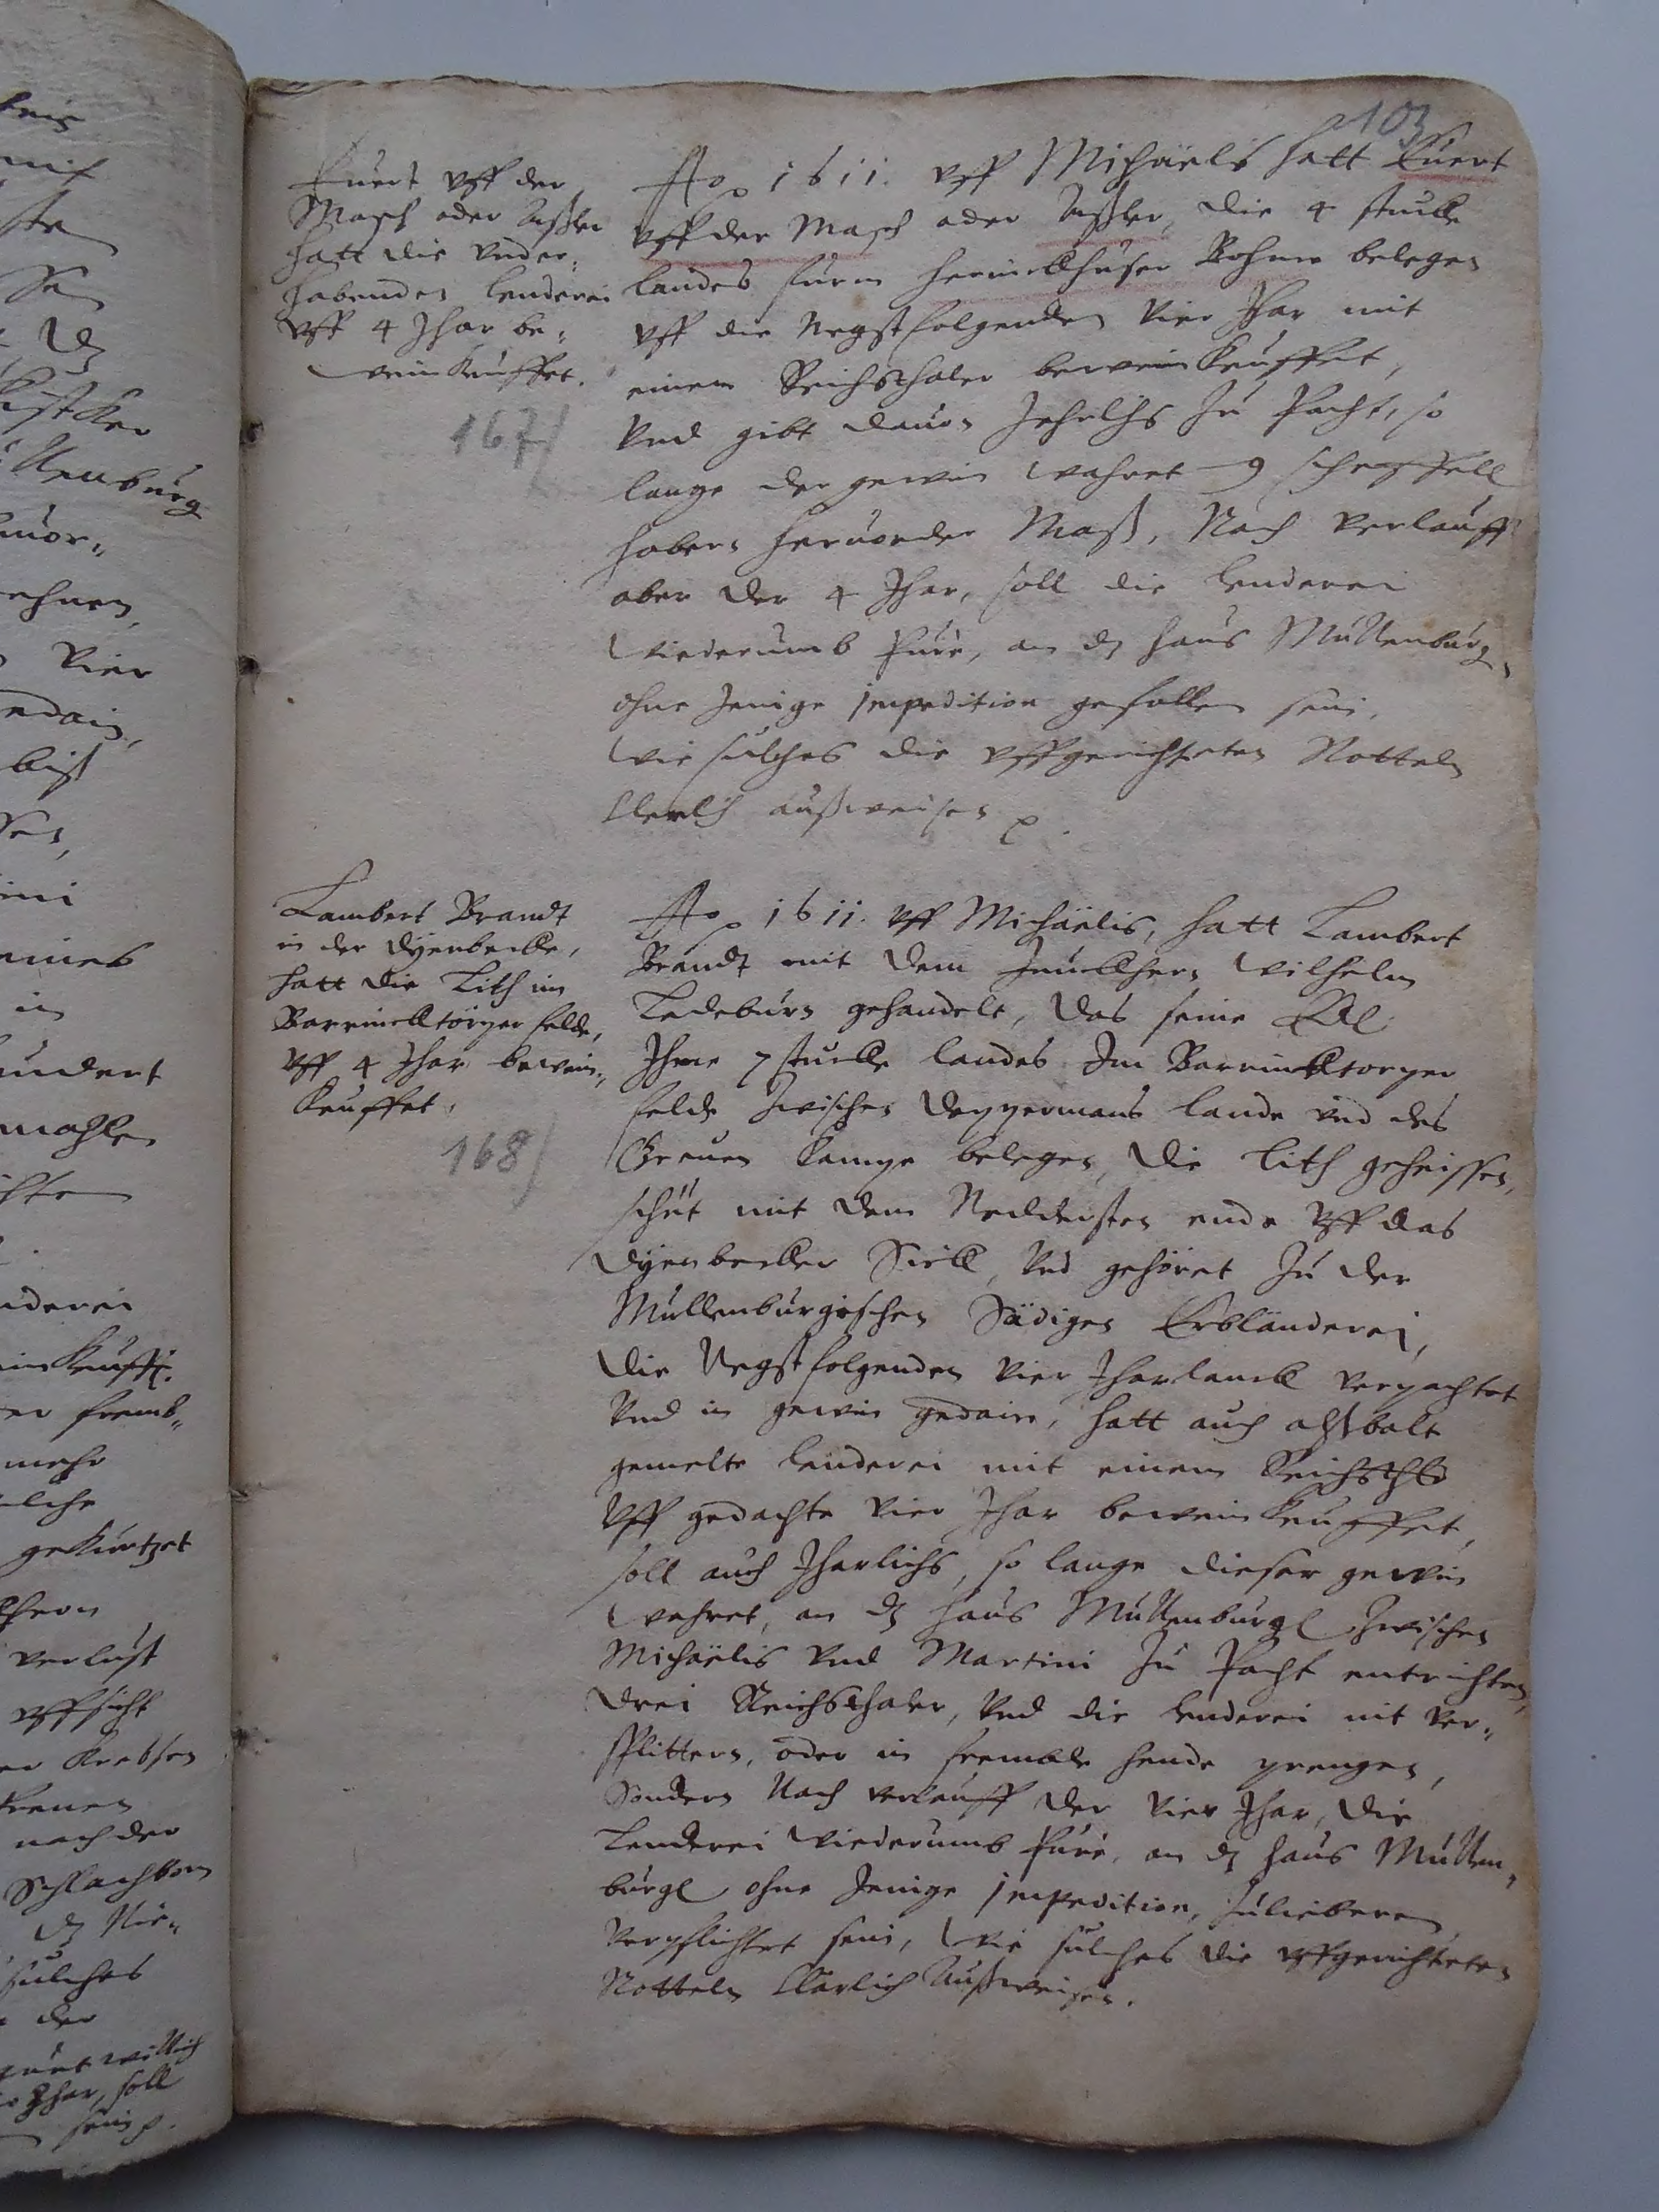 103
Euert vff der
Masch oder Aßler
hatt die vnder-
habenden lenderei
vff 4 Jhar be-
weinkeuffet.
167/
Ao 1611. vff Michaëlis hatt Euert
vff der Masch oder Aßler, die 4 stucke
landes furm Böhme belegen
vff die Negstfolgenden Vier Jhar mit
einem Reichsthaler beweinkeuffet,
Vnd gibt dauon Jehrlichs Zu Pacht, so
lange der gewin wahret 9 scheffell
habern heruorder Maß, Nach Verlauff
aber der 4 Jhar, soll die lenderei
wiederumb an dz haus Mullenburg,
ohne Jenige impedition gefallen sein,
wie sulches die vffgerichteten Notteln
klerlich außweisen
Lambert Brandt
in der Dÿenbecke,
hatt die Lith im
Barrincktörper felde,
vff 4 Jhar bewein-
keuffet,
168/
Ao 1611. vff Michaëlis, hatt Lambert
Brandt mit dem Junckhern Wilhelm
Ledeburn gehandelt, das seine
Ihme 7 stucke landes Im Barrincktorper
felde Zwischen Deppermans lande vnd des
Greuen Kampe belegen, die Lith geheissen,
schut mit dem Neddersten ende vff das
Dÿenbecker Sieck, Vnd gehöret Zu der
Mullenburgischen Sädigen Erbländerei,
die Negstfolgenden Vier Jharlanck verpachtet
Vnd in gewin gedain, hatt auch alßbalt
gemelte lenderei mit einem Reichsthlr
vff gedachte Vier Jhar beweinkeuffet,
soll auch Jharlichs, so lange dieser gewin
wehret, an dz haus Mullenburg Zwischen
Michaëlis Vnd Martini Zu Pacht entrichten,
drei Reichsthaler, Vnd die lenderei nit ver-
splittern, oder in frembde hende prengen,
Sondern Nach verlauff der Vier Jhar, die
Lenderei wiederumb an dz haus Mullen-
burg ohne Jenige impedition, Zuliebern
Verpflichtet sein, wie sulches die vffgerichteten
Notteln klarlich Außweisen.